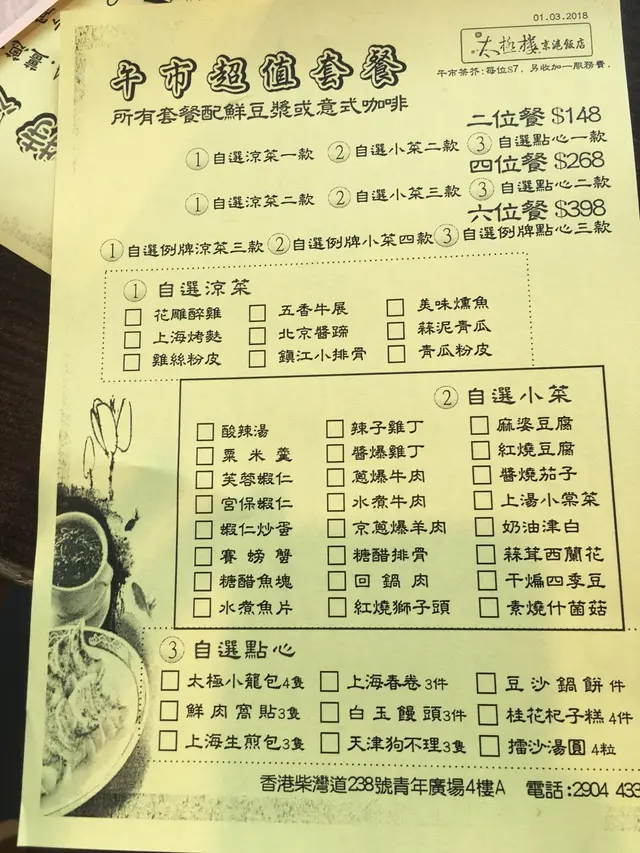 01.03.2018
太極樓 京滬飯店
午市超值套餐
午市茶芥:每位$7. 另收加一服務費.
所有套餐配鮮豆漿或意式咖啡
二位餐 $148
① 自選涼菜一款 ② 自選小菜二款 ③ 自選點心一款
四位餐 $268
① 自選涼菜二款 ② 自選小菜三款 ③ 自選點心二款
六位餐 $398
① 自選例牌涼菜三款 ② 自選例牌小菜四款 ③ 自選例牌點心三款
① 自選涼菜
花雕醉雞 五香牛展 美味燻魚
上海烤麩 北京醬蹄 蒜泥青瓜
雞絲粉皮 鎮江小排骨 青瓜粉皮
② 自選小菜
酸辣湯 辣子雞丁 麻婆豆腐
粟米羹 醬爆雞丁 紅燒豆腐
芙蓉蝦仁 蔥爆牛肉 醬燒茄子
宮保蝦仁 水煮牛肉 上湯小棠菜
蝦仁炒蛋 京蔥爆羊肉 奶油津白
賽螃蟹 糖醋排骨 蒜茸西蘭花
糖醋魚塊 回鍋肉 干煸四季豆
水煮魚片 紅燒獅子頭 素燒什菌菇
③ 自選點心
太極小籠包4隻 上海春卷3件 豆沙鍋餅 件
鮮肉窩貼3隻 白玉饅頭3件 桂花杞子糕 4件
上海生煎包3隻 天津狗不理3隻 擂沙湯圓 4粒
香港柴灣道238號青年廣場4樓A 電話:2904 433